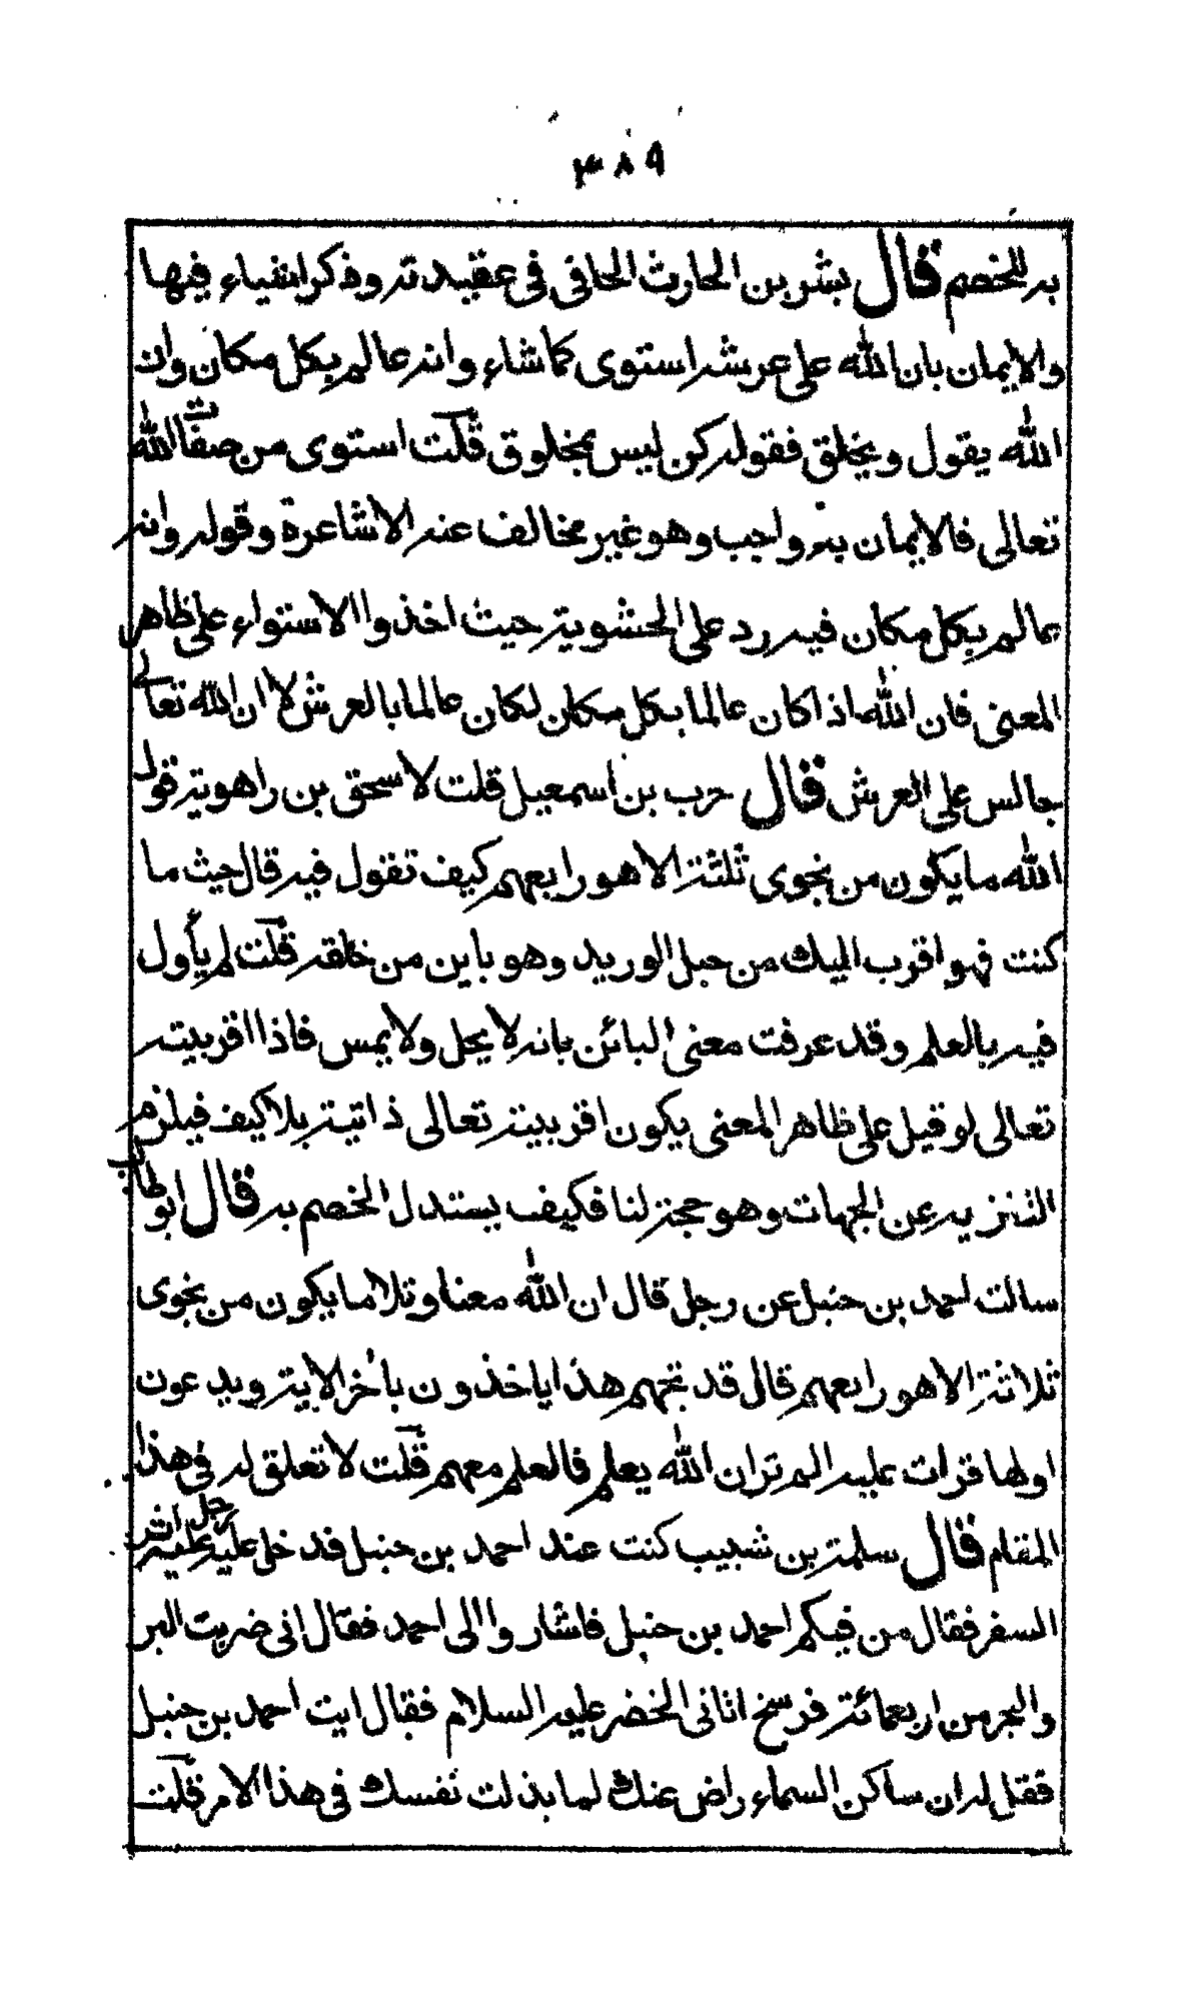 ٣٨٩
به للخصم قال بشر بن الحارث الحافى فى عقيدته وذكر اشياء فيها
والايمان بان الله على عرشه استوى كما شاء وانه عالم بكل مكان وان
الله يقول ويخلق فقوله كن ليس بمخلوق قلت استوى من صفات الله
تعالى فالايمان به واجب وهو غير مخالف عند الاشاعرة وقوله وانه
عالم بكل مكان فيه رد على الحشوية حيث اخذوا الاستواء على ظاهر
المعنى فان الله اذا كان عالما بكل مكان لكان عالما بالعرش لا ان الله تعالى
جالس على العرش قال حرب بن اسمعيل قلت لاسحق بن راهوية قول
الله ما يكون من نجوى ثلثة الا هو رابعهم كيف تقول فيه قال حيث ما
كنت فهو اقرب اليك من حبل الوريد وهو باين من خلقه قلت لم يأول
فيه بالعلم وقد عرفت معنى البائن بانه لا يحل ولا يمس فاذا اقربيته
تعالى لو قيل على ظاهر المعنى يكون اقربيته تعالى ذاتية بلا كيف فيلزم
التنزيه عن الجهات وهو حجة لنا فكيف يستدل الخصم به قال ابو طالب
سالت احمد بن حنبل عن رجل قال ان الله معنا وتلا ما يكون من نجوى
ثلاثة الا هو رابعهم قال قد تجهم هذا ياخذون بأخر الاية ويدعون
اولها قرات عليه الم تر ان الله يعلم فالعلم معهم قلت لا تعلق له فى هذا
المقام قال سلمة بن شبيب كنت عند احمد بن حنبل فدخل عليه رجل عليه اثر
السفر فقال من فيكم احمد بن حنبل فاشاروا الى احمد فقال انى ضربت البر
والبحر من اربعمائة فرسخ اتانى الخضر عليه السلام فقال ايت احمد بن حنبل
فقل له ان ساكن السماء راض عنك لما بذلت نفسك فى هذا الامر قلت